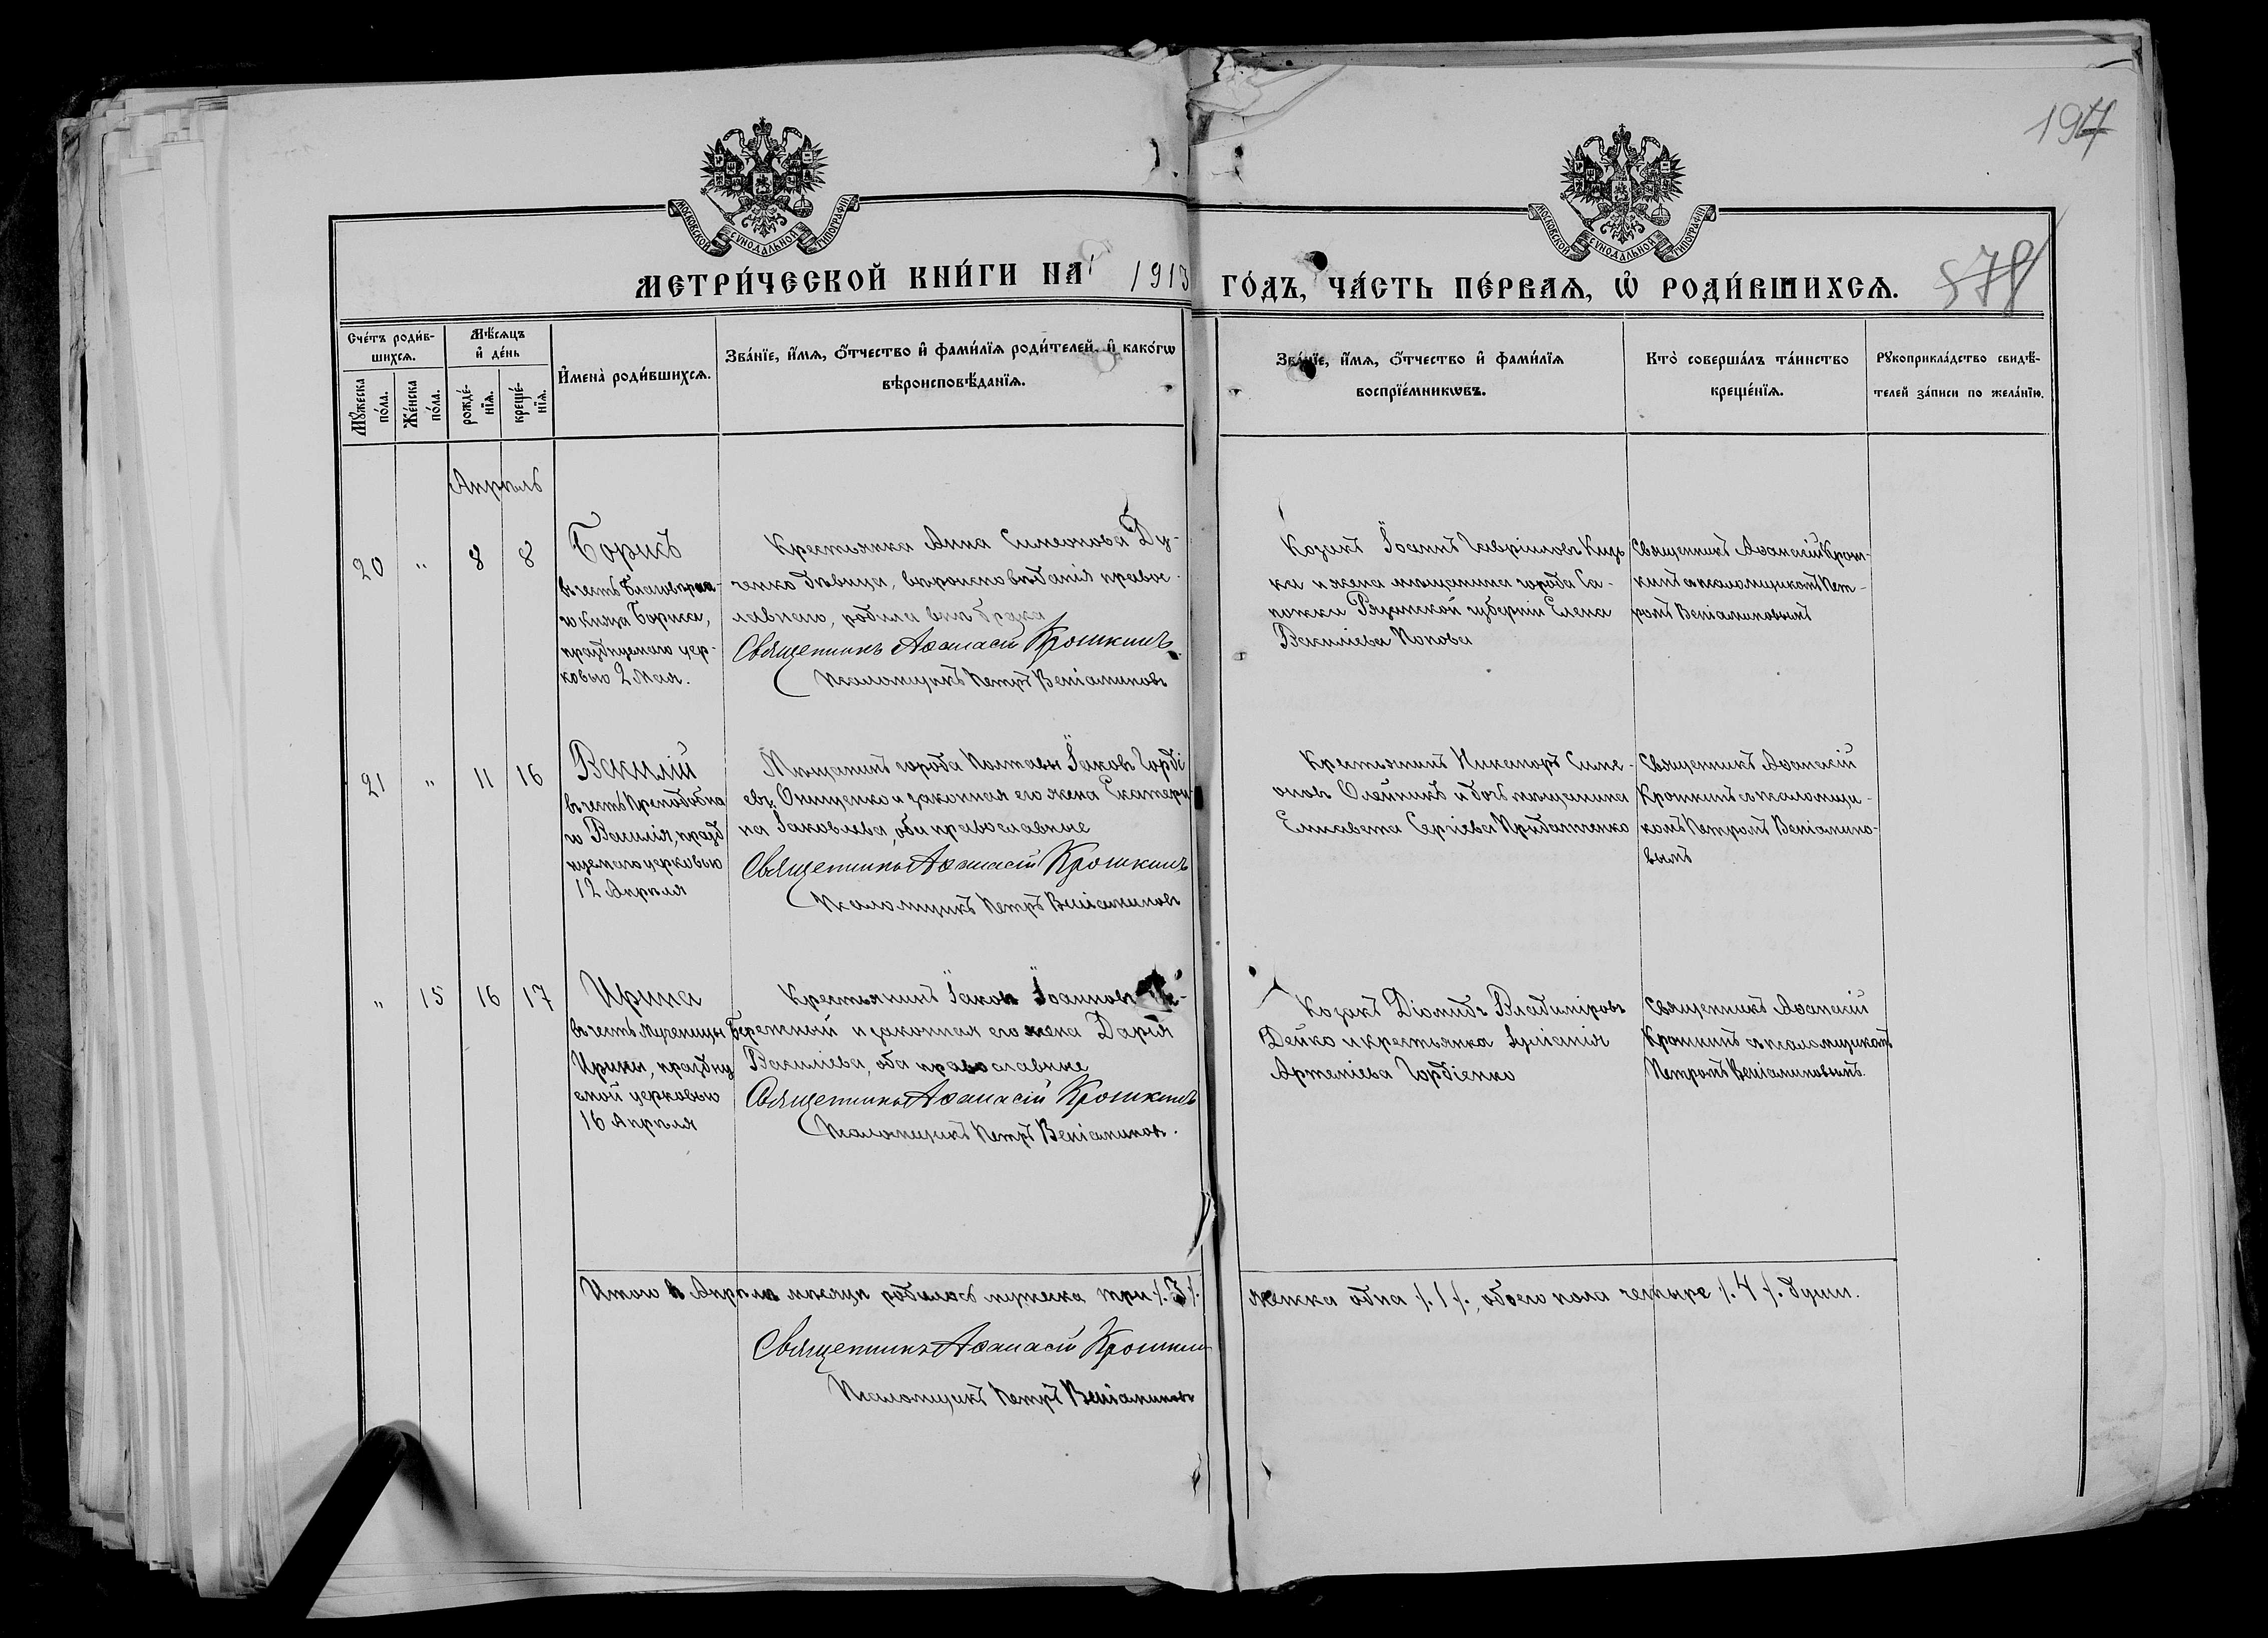 194
МОСКОВСКОЙ СѴНОДАЛЬНОЙ ТИПОГРАФІИ
МОСКОВСКОЙ СѴНОДАЛЬНОЙ ТИПОГРАФІИ
МЕТРИ́ЧЕСКОЙ КНИ́ГИ НА 1913 ГО́ДЪ, ЧА́СТЬ ПЕ́РВАѦ, Ѡ РОДИ́ВШИХСѦ.
Сче́тъ роди́в-
шихсѧ.
Мꙋ́жеска
по́ла.
Же́нска
по́ла.
Мѣ́сѧцъ
и де́нь
рожде́-
нїѧ.
креще́-
нїѧ.
Имена̀ роди́вшихсѧ.
Зва́нїе, и́мѧ, о́тчество и фами́лїѧ роди́телей, и како́гѡ
вѣроисповѣ́данїѧ.
Зва́нїе, и́мѧ, о́тчество и фами́лїѧ
воспрїе́мникѡвъ.
Кто̀ соверша́лъ та́инство
креще́нїѧ.
Рꙋкоприкла́дство свидѣ́-
телей за́писи по жела́нїю.
Апрѣль
20 " 8 8
Борисъ
въ честь Благовѣрна-
го князя Бориса,
празднуемаго цер-
ковью 2 Мая.
Крестьянка Анна Симеонова Ду-
ченко дѣвица, вѣроисповѣданія правос-
лавнаго, родила внѣ брака
Священникъ Аѳанасій Крошкинъ
Псаломщикъ Петръ Веніаминовъ
Козакъ Іоаннъ Гавріиловъ
ка и жена мѣщанина города Са-
пожка Рязанской губерніи Елена
Василіева Попова
Священникъ Аѳанасій Крош-
кинъ съ псаломщикомъ Пет-
ромъ Веніаминовымъ
21 " 11 16
Василій
въ честь Преподобна
го Василія, празд
нуемаго церковью
12 Апрѣля
Мѣщанинъ города Полтавы Іаковъ Горді
евъ Онищенко и законная его жена Екатери-
на Іаковлева, оба православные
Священникъ Аѳанасій Крошкинъ
Псаломщикъ Петръ Веніаминовъ
Крестьянинъ Никаноръ Симе-
оновъ Олейникъ и дочь мѣщанина
Елисавета Сергіева Придатченко
Священникъ Аѳанасій
Крошкинъ съ псаломщи-
комъ Петромъ Веніамино-
вымъ
" 15 16 17
Ирина
въ честь мученицы
Ирины, праздну
емой церковью
16 Апрѣля
Крестьянинъ Іаковъ Іоанновъ
Бережный и законная его жена Дарія
Василіева, оба православные
Священникъ Аѳанасій Крошкинъ
Псаломщикъ Петръ Веніаминовъ.
Козакъ Діомидъ Владиміровъ
Дейко и крестьянка Іуліанія
Артеміева Гордіенко
Священникъ Аѳанасій
Крошкинъ съ псаломщикомъ
Петромъ Веніаминовымъ.
Итого въ Апрѣлѣ мѣсяцѣ родилось мужеска три /.3/. женска одна /.1/., обоего пола четыре /.4/. души.
Священникъ Аѳанасій Крошкинъ
Псаломщикъ Петръ Веніаминовъ